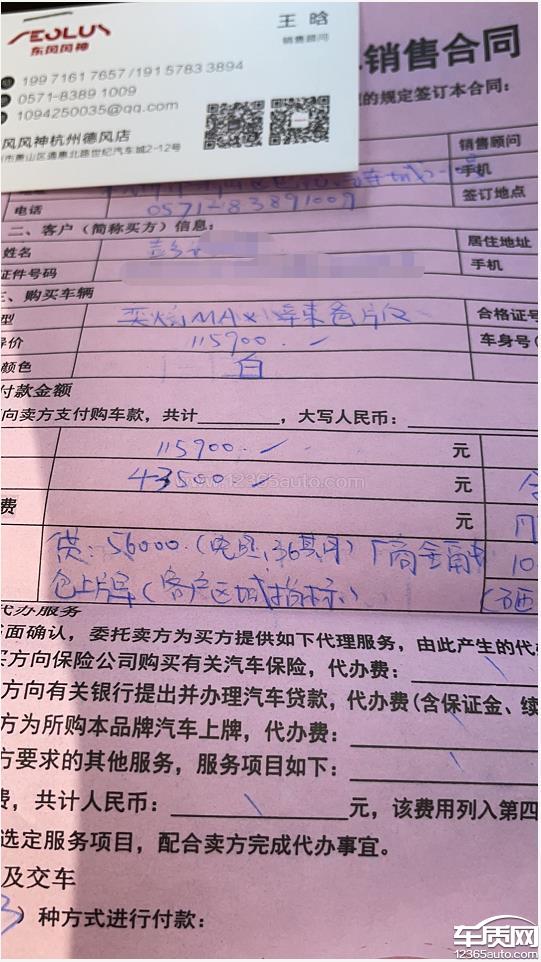 AEOLUS
东风风神
王 晗
销售顾问
199 7161 7657/191 5783 3894
0571-8389 1009
1094250035@qq.com
风风神杭州德风店
市萧山区通惠北路世纪汽车城2-12号
销售合同
的规定签订本合同:
销售顾问
手机
电话
0571-83891009
签订地点
二、客户（简称买方）信息:
姓名
居住地址
证件号码
手机
三、购买车辆
型
奕炫MAX
合格证号
导价
115900.
车身号(
颜色
白
付款金额
向卖方支付购车款，共计________，大写人民币:
115900.
元
43500
www.12365auto.com
元
费
元
贷:56000.(
36期)厂商金融
10
包上牌(客户区域指标.)
代办服务
面确认，委托卖方为买方提供如下代理服务，由此产生的代
买方向保险公司购买有关汽车保险，代办费:
方向有关银行提出并办理汽车贷款，代办费(含保证金、续
方为所购本品牌汽车上牌，代办费:
方要求的其他服务，服务项目如下:
费，共计人民币:________元，该费用列入第四
选定服务项目，配合卖方完成代办事宜。
及交车
3）种方式进行付款:
车质网
12365auto.com